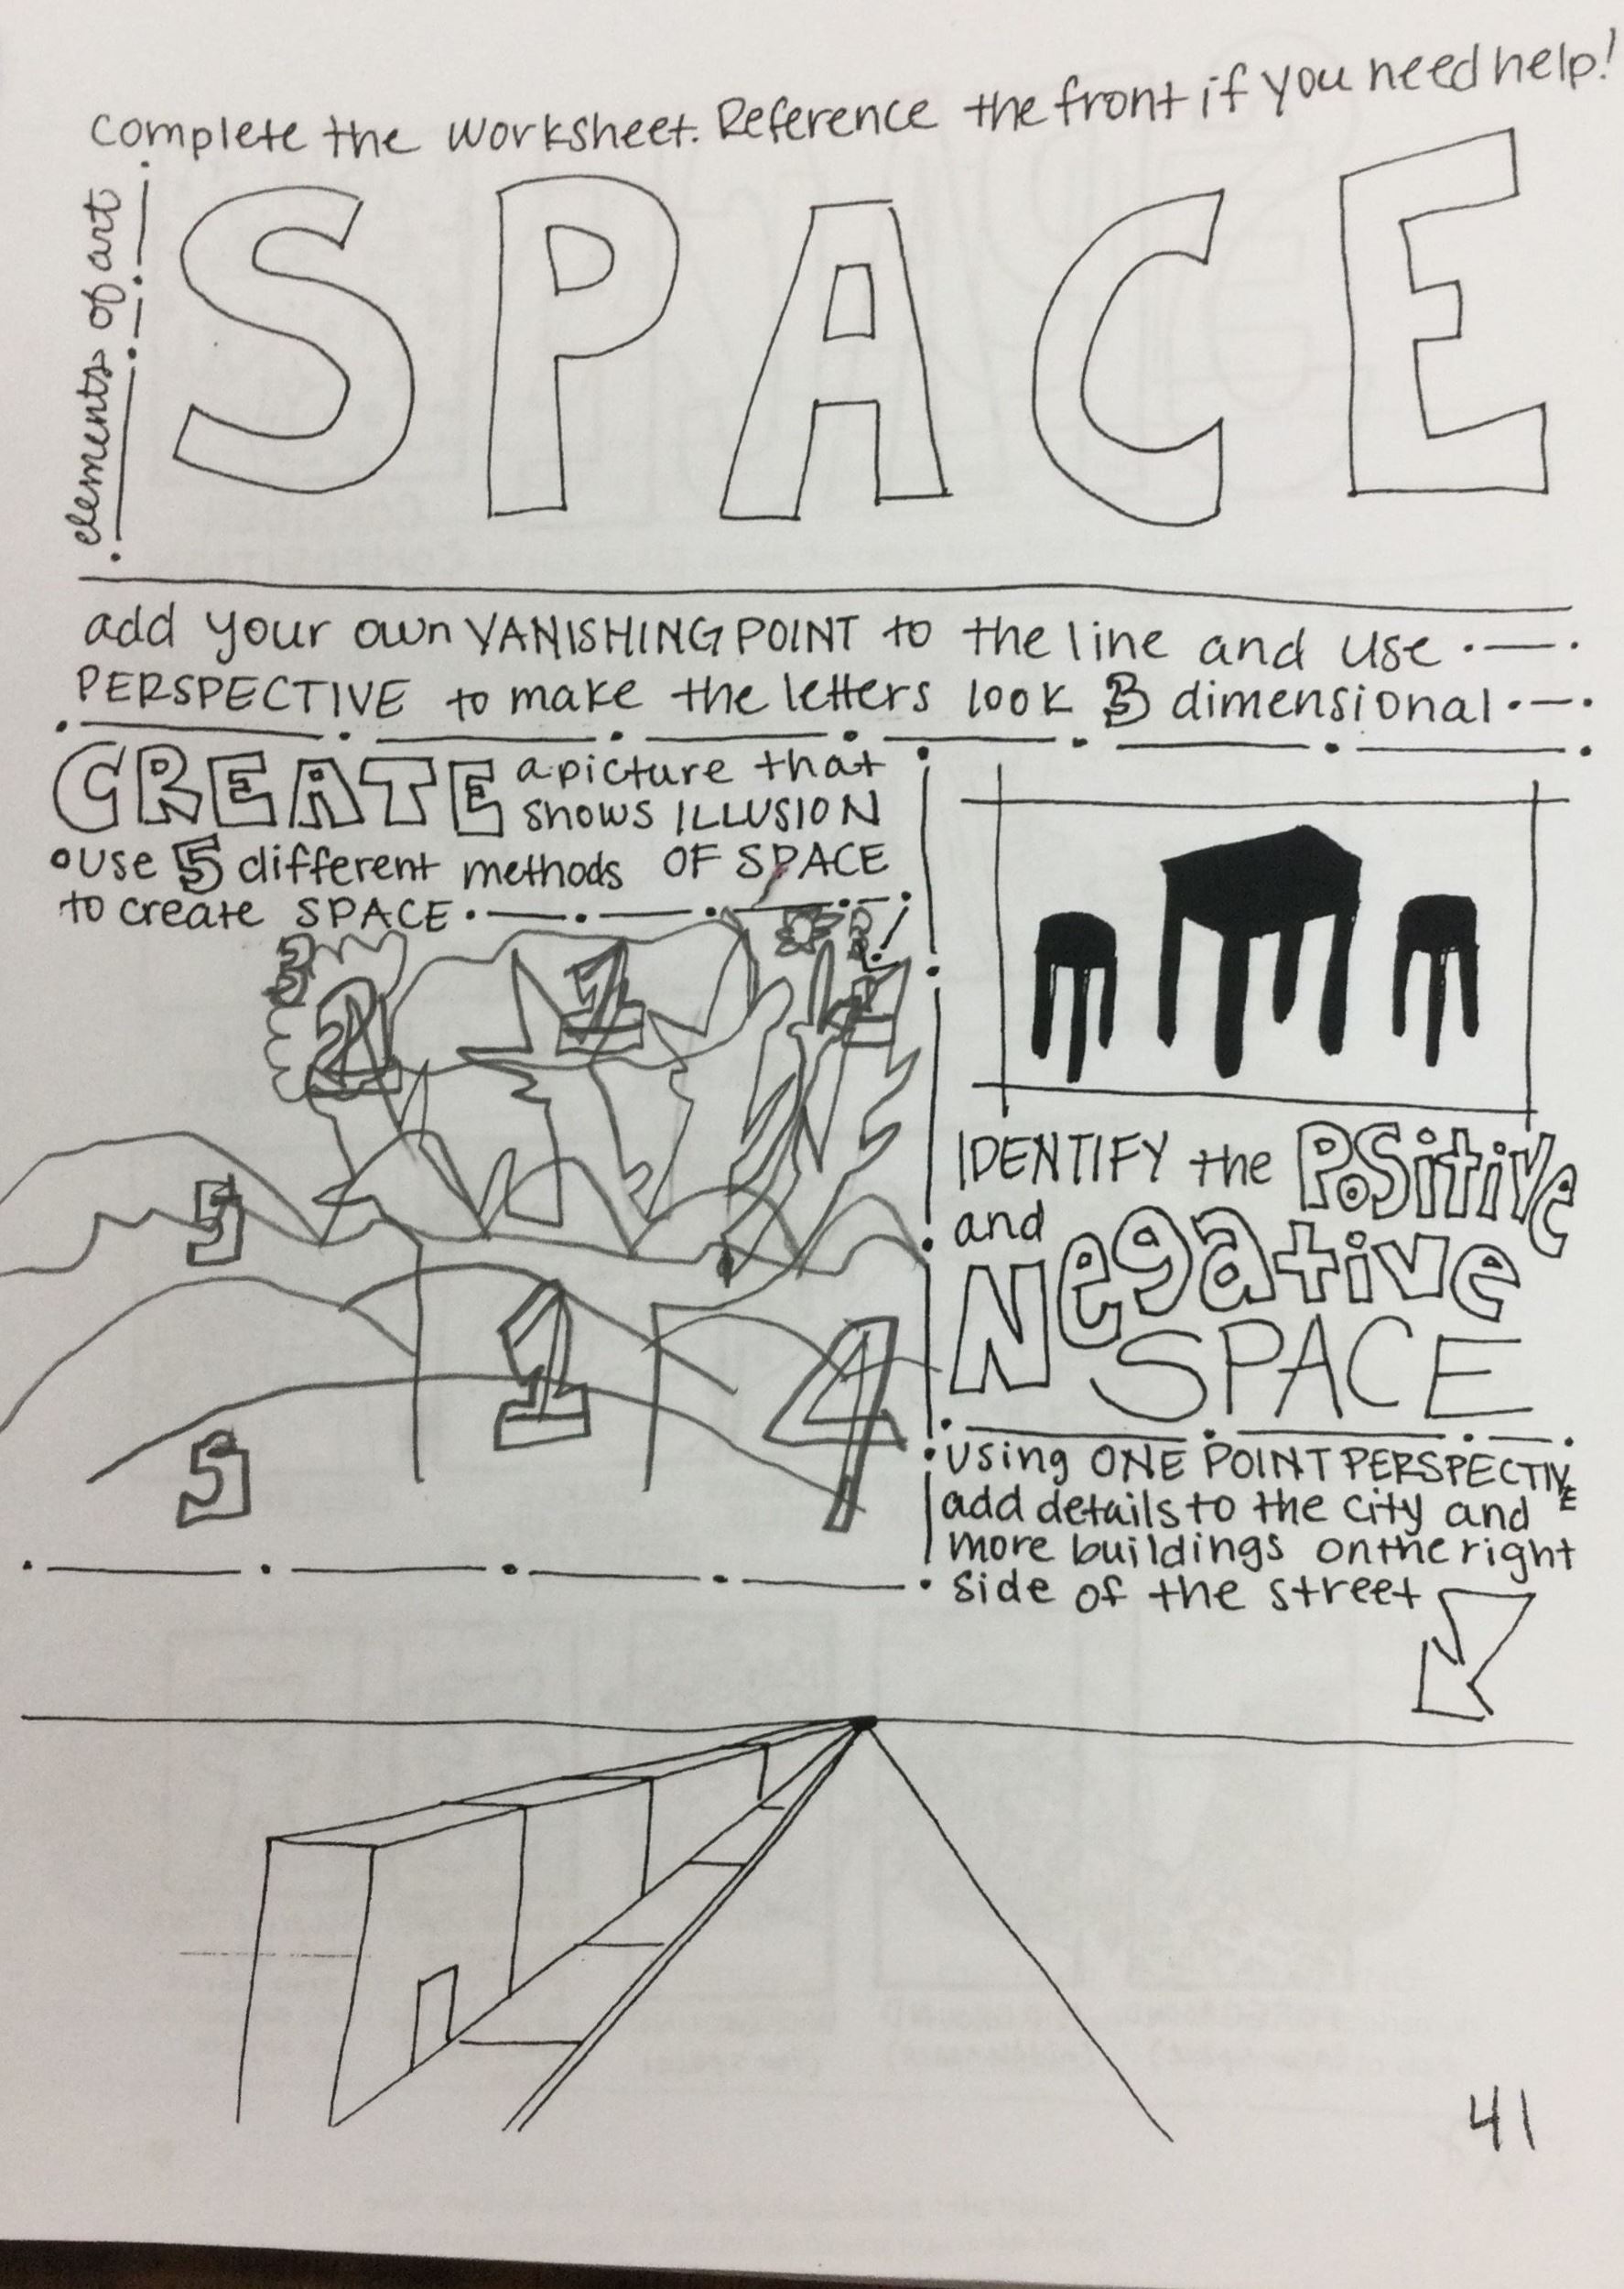 complete the worksheet. Reference the front if you need help!
elements of art
SPACE
add your own VANISHING POINT to the line and use
PERSPECTIVE to make the letters look 3 dimensional
CREATE a picture that
shows ILLUSION
OF SPACE
• use 5 different methods
to create SPACE
3
2
1
1
5
1
4
5
IDENTIFY the Positive
and
Negative
SPACE
• using ONE POINT PERSPECTIVE
add details to the city and
more buildings on the right
side of the street
41